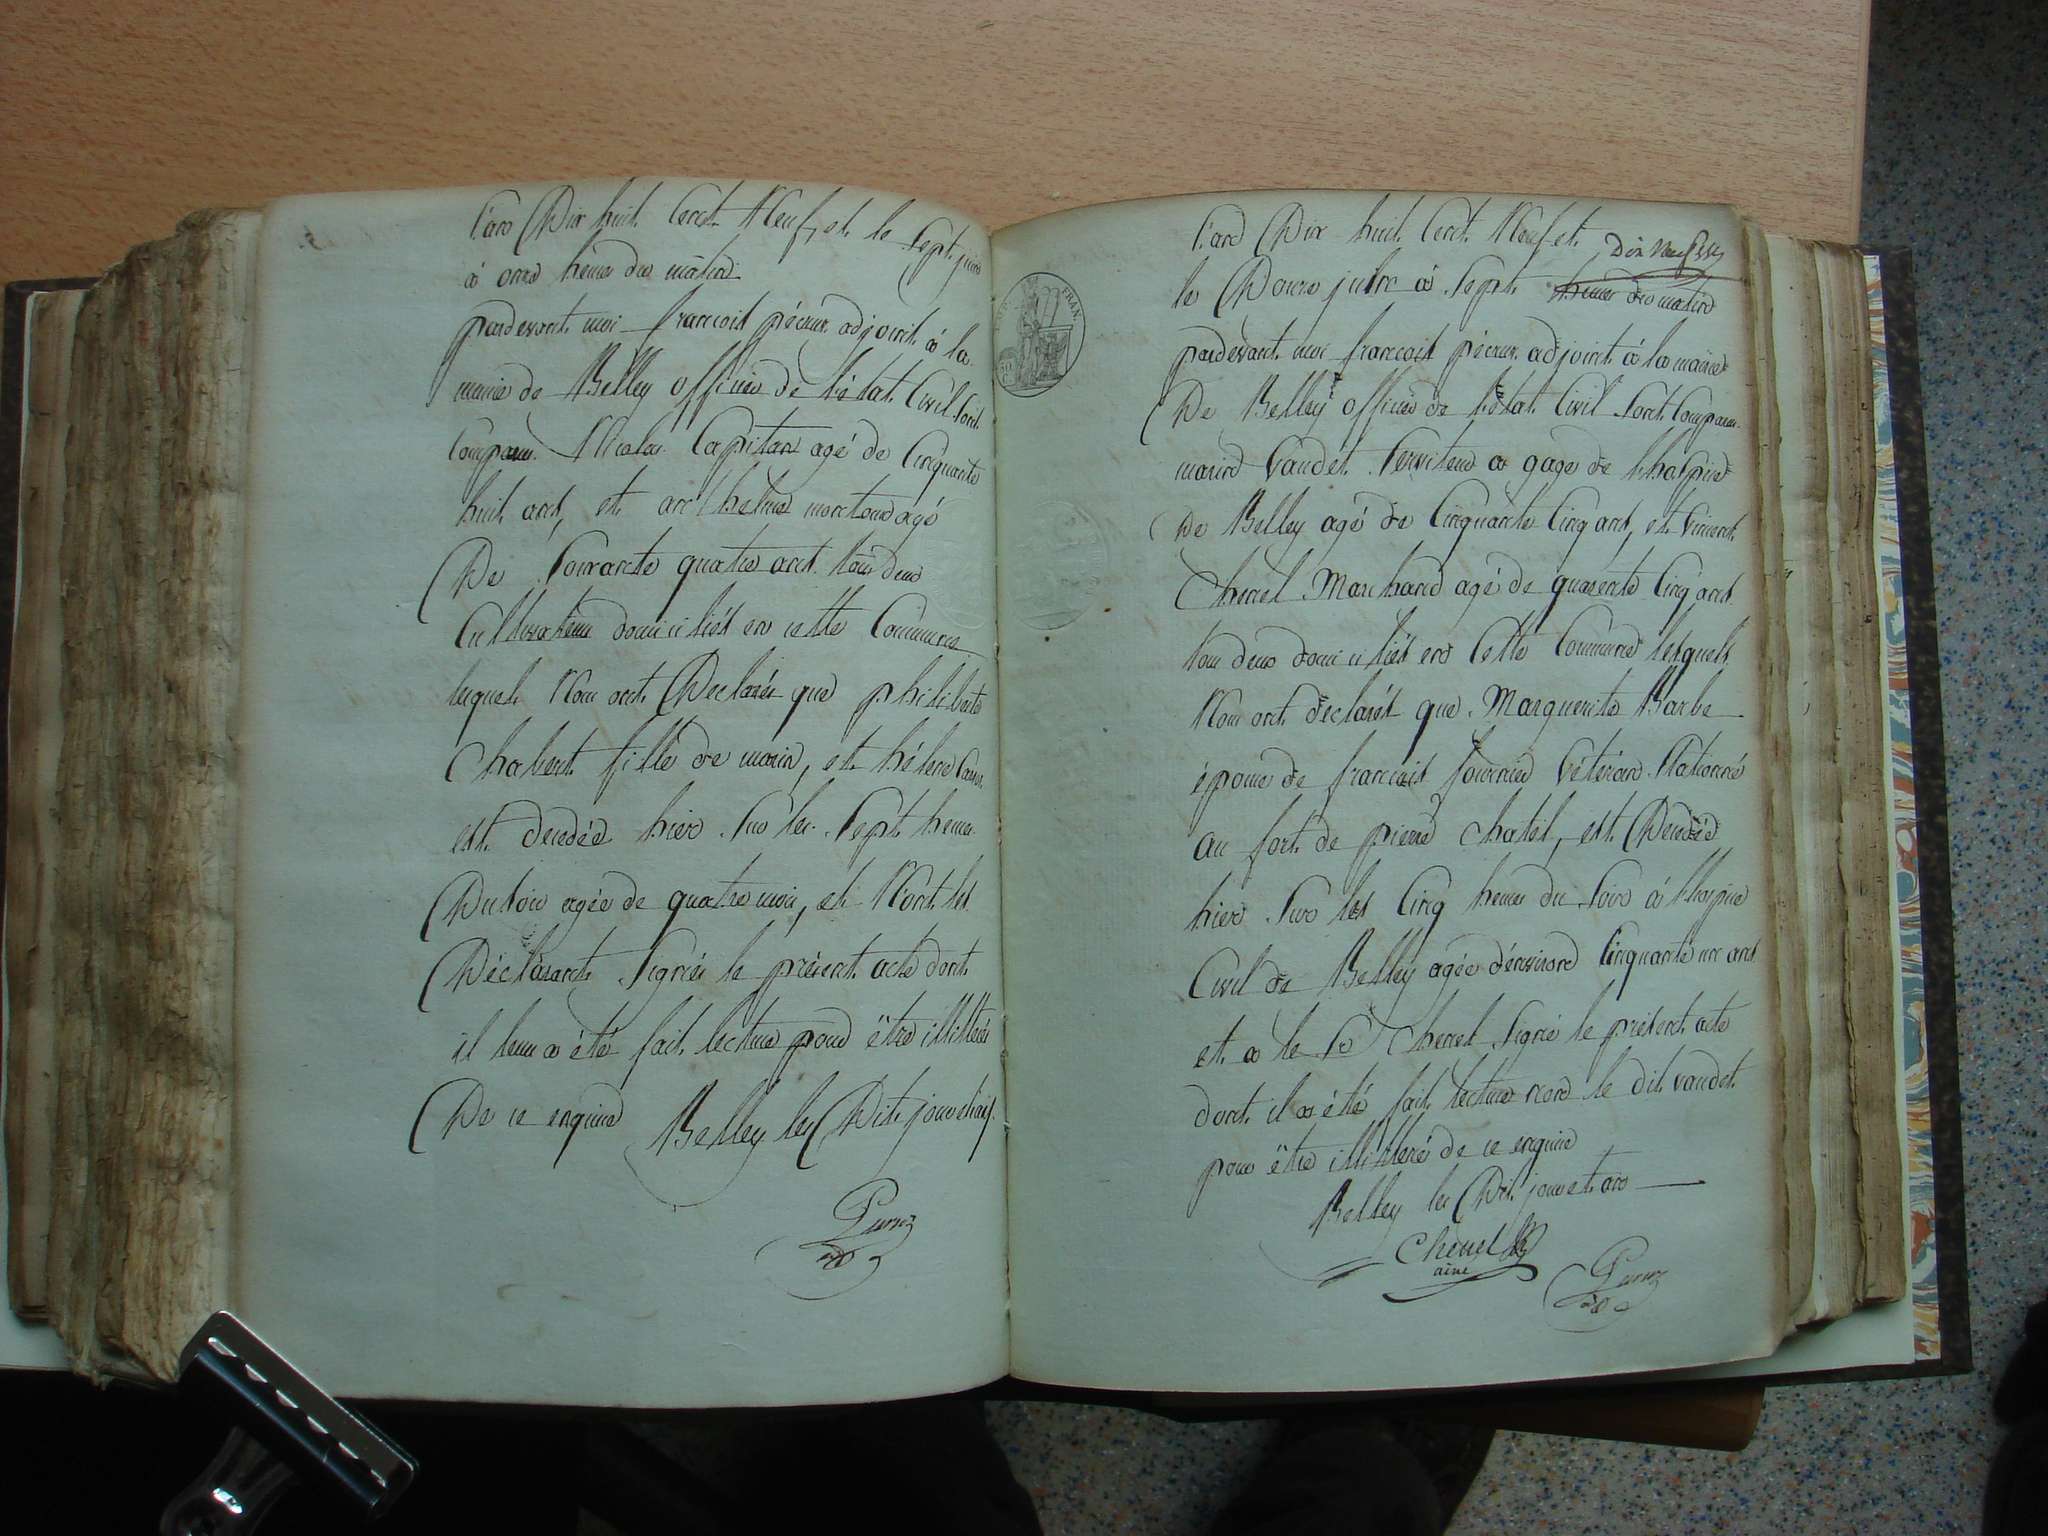 L'an Dix huit Cent Neuf, et le Sept juin
à onze heures du matin
pardevant moi françois pécuz adjoint à la
mairie de Belley officier de l'état Civil sont
comparus Nicolas Capitan agé de Cinquante
huit ans, et anthelme montoud agé
De Soixante quatre ans tous deux
Cultivateurs domiciliés en cette Commune
lesquels Nous ont Déclarés que philiberte
Chabert fille de marin, et hélène
est décédée hier sur les Sept heures
Du soir agée de quatre mois, et N'ont les
Déclarants Signés le présent acte dont
il leur a été fait lecture pour être illittérés
De ce enquis Belley les Dits jour et an
L'an Dix huit Cent Neuf et
le Douze à Sept heures du matin
pardevant moi françois pécuz adjoint à la mairie
De Belley officier de l'état Civil sont Comparus
marin vaudet Serviteur a gage de l'hospice
De Belley agé de Cinquante Cinq ans, et Vincent
Chenel Marchand agé de quarente Cinq ans
tous deux domiciliés en Cette Commune lesquels
Nous ont déclarés que Marguerite Barbe
épouse de françois fournier Vétéran Stationné
au fort de pierre Chatel, est Décédée
hier sur les Cinq heures du soir à l'hospice
Civil de Belley agée d'environ Cinquante un ans
et a le Sr Chenel Signé le présent acte
dont il a été fait lecture non le dit vaudet
pour être illittéré de ce enquis
Belley les Dits jour et an
Chenel
ainé
FRAN.